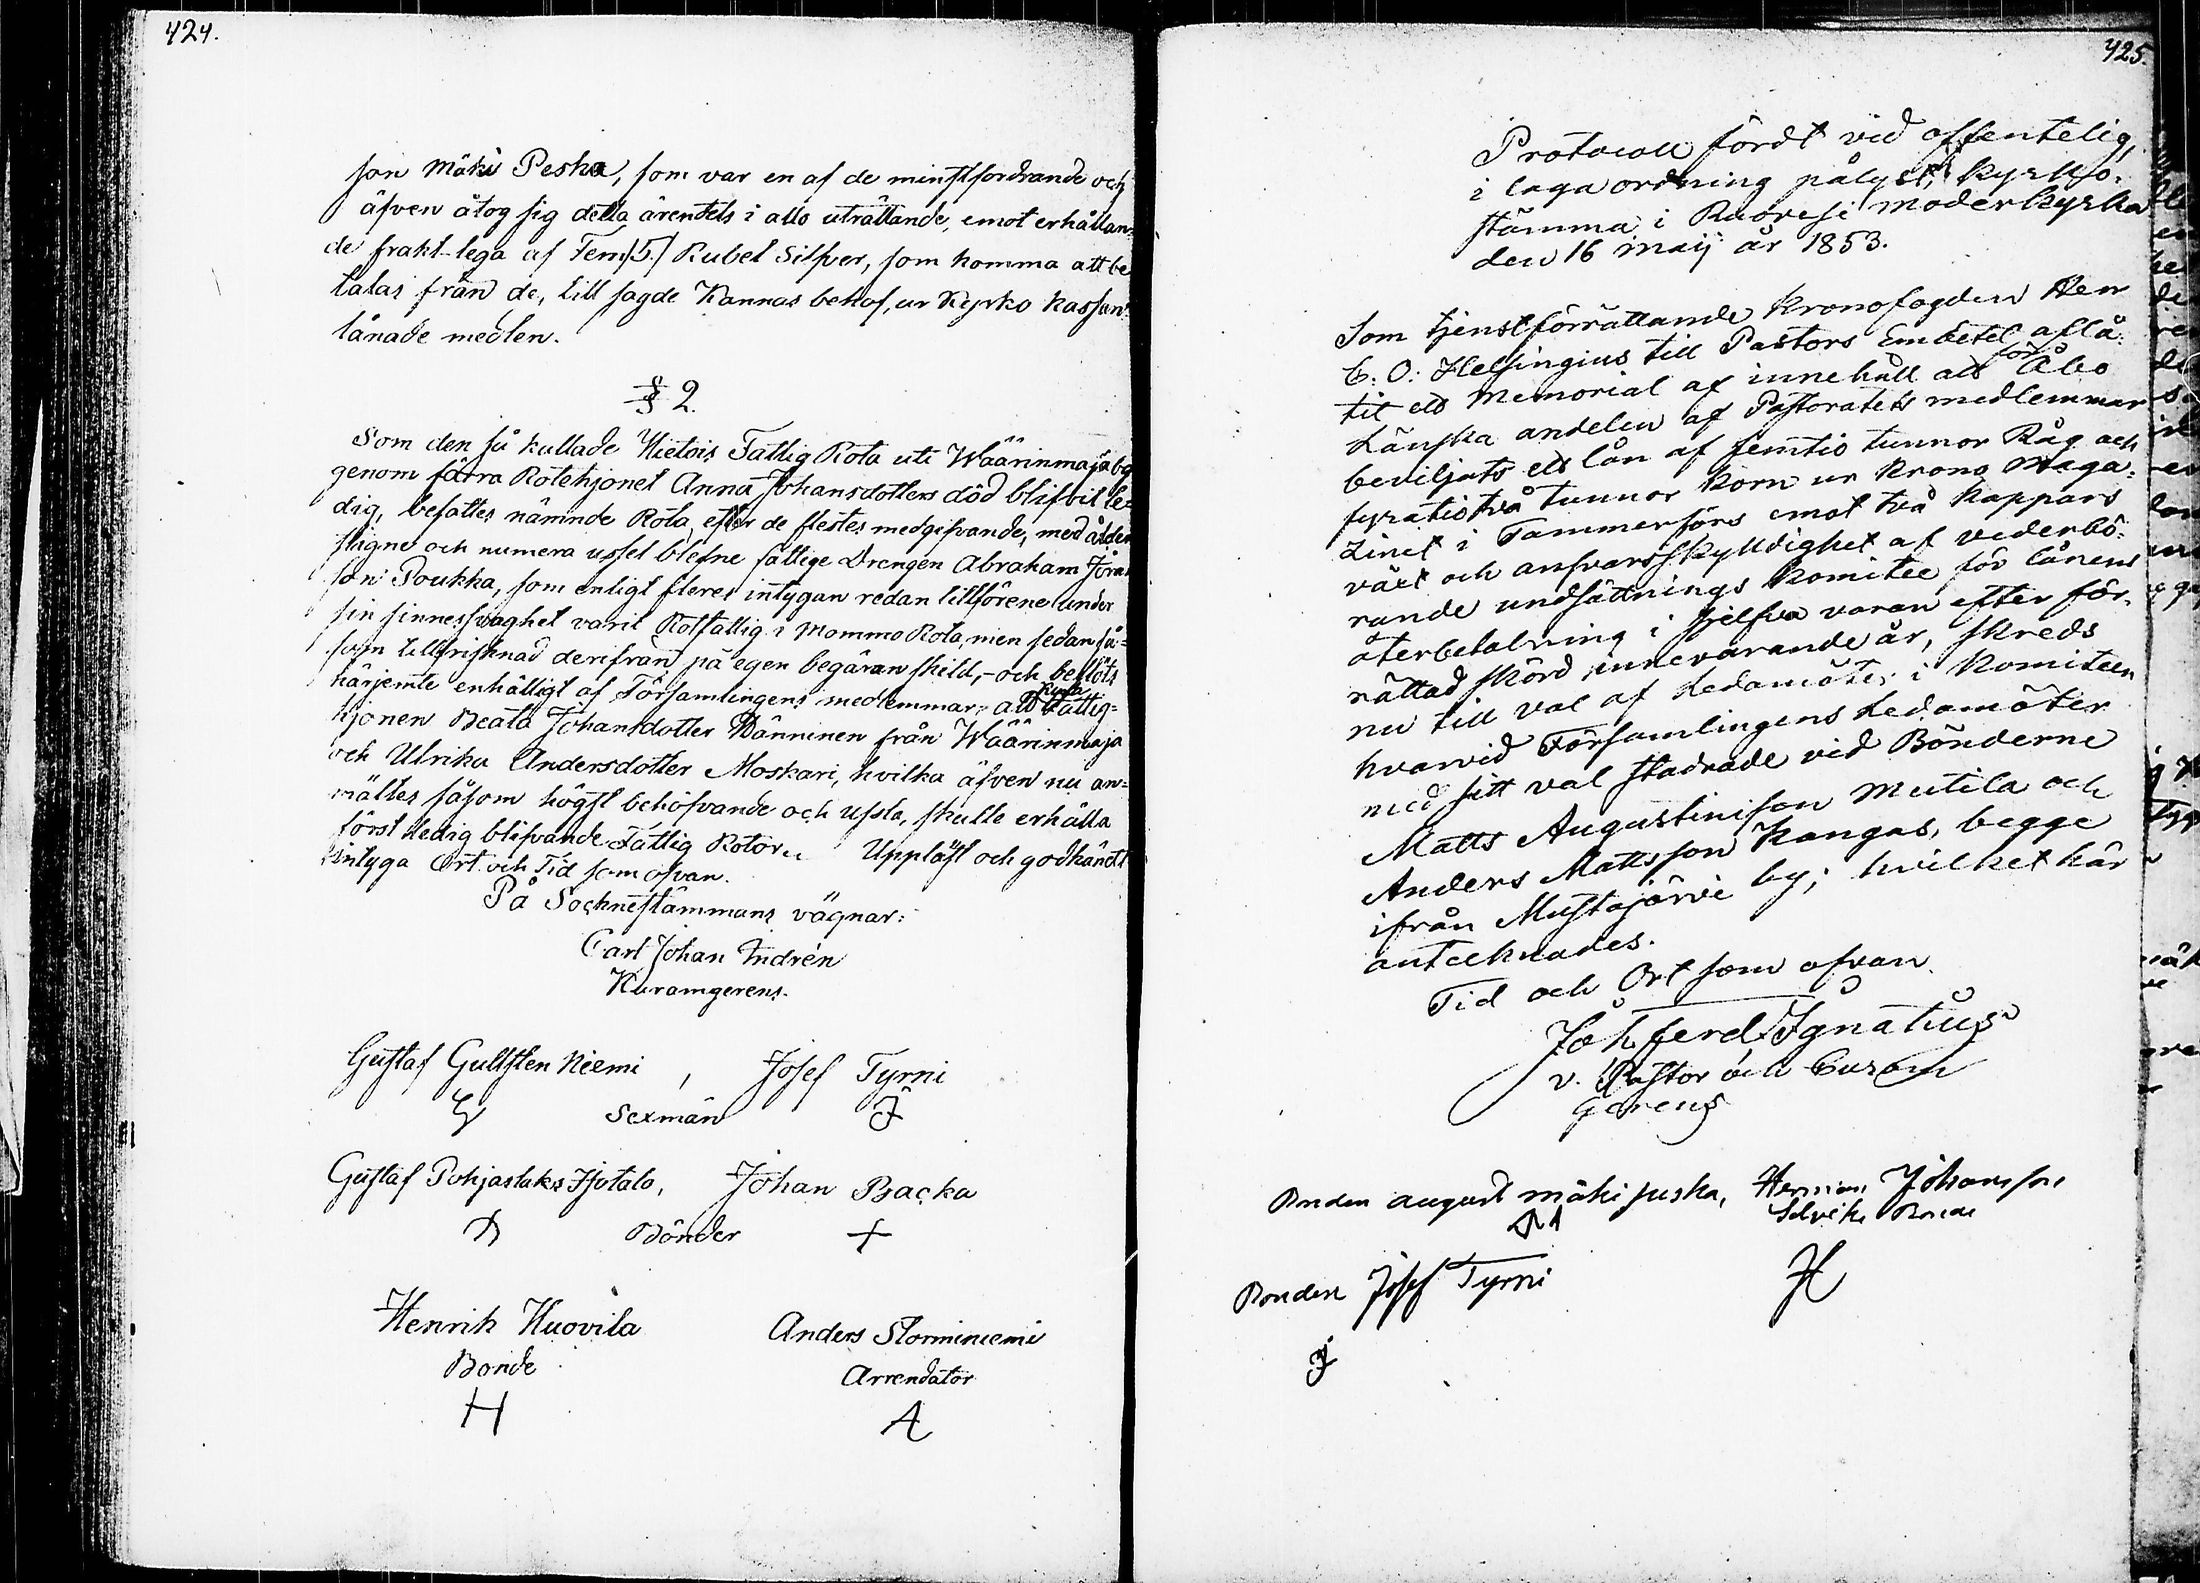 424.
son Mäki Peska, som var en af de minstfordrande och
äfven åtog sig detta ärendets i allo uträttande, emot erhållan-
de frakt-lega af Fem /5/ Rubel Silfver, som komma att be
talas från de, till sagde Kannas behof, ur Kyrko Kassan
lånade medlen.
§ 2.
Som den så kallade Hietois Fattig Rota uti Wäärinmaja by
genom förra Rotehjonet Anna Johansdotters död blifvit le-
dig, befattes nämnde Rota, efter de flestes medgifvande, med ålder
stigne och numera ussel blefne fattige Drengen Abraham Jöran
son Poukka, som enligt fleres intygan redan tillförene under
sin sinnessvaghet varit Rotfattig i Mommo Rota, men sedan så-
som tillfrisknad derifrån på egen begäran skild, - och beslöts
härjemte enhälligt af Församlingens medlemmar, att Fattig-
hjonen Beata Johansdotter Hänninen från Wäärinmaja
och Ulrika Andersdotter Moskari, hvilka äfven nu an-
mältes såsom högst behöfvande och ussla, skulle erhålla
först ledig blifvande Fattig Rotor. Uppläst och godkändt
intyga Ort och Tid som ofvan.
På Sochnestämmans vägnar:
Carl Johan Indrén
Kuramgerens.
Gustaf Gullsten Niemi, Josef Tyrni
Sexmän J
Gustaf Pohjaslaks Isotalo, Johan Backa
Bönder +
Henrik Huovila Anders Storminiemi
Bonde Arrendator
H A
425.
Protocoll fördt vid offentelig,
i laga ordning pålyst, kyrkjo-
stämma i Ruovesi moderkyrka
den 16 Maij år 1853.
Som tjenstförrättande Kronofogden Herr
C: O: Helsingius till Pastors Embetet aflå-
tit ett Memorial af innehåll att för Åbo
Länska andelen af Pastoratets medlemmar
beviljats ett lån af femtio tunnor Råg och
fyratiotvå tunnor Korn ur Krono Maga-
zinet i Tammerfors emot två kappars
växt och ansvarsskyldighet af vederbö-
rande undsättnings Komitee för lånens
återbetalning i sjelfva varan efter för-
rättad skörd innevarande år, skreds
nu till val af Ledamöter i Komiteen
hvarvid Församlingens Ledamöter
med sitt val stadnade vid Bönderne
Matts Augustinsson Mutila och
Anders Mattsson Kangas, begge
ifrån Mustajärvi by; hvilket här
antecknades.
Tid och Ort som ofvan.
Joh Ferd Ignatius
v. Pastor och Curam
Gerens
Bonden august mäki puska, Herman Johansson
Selvike Bonde
Bonden Josef Tyrni H
J